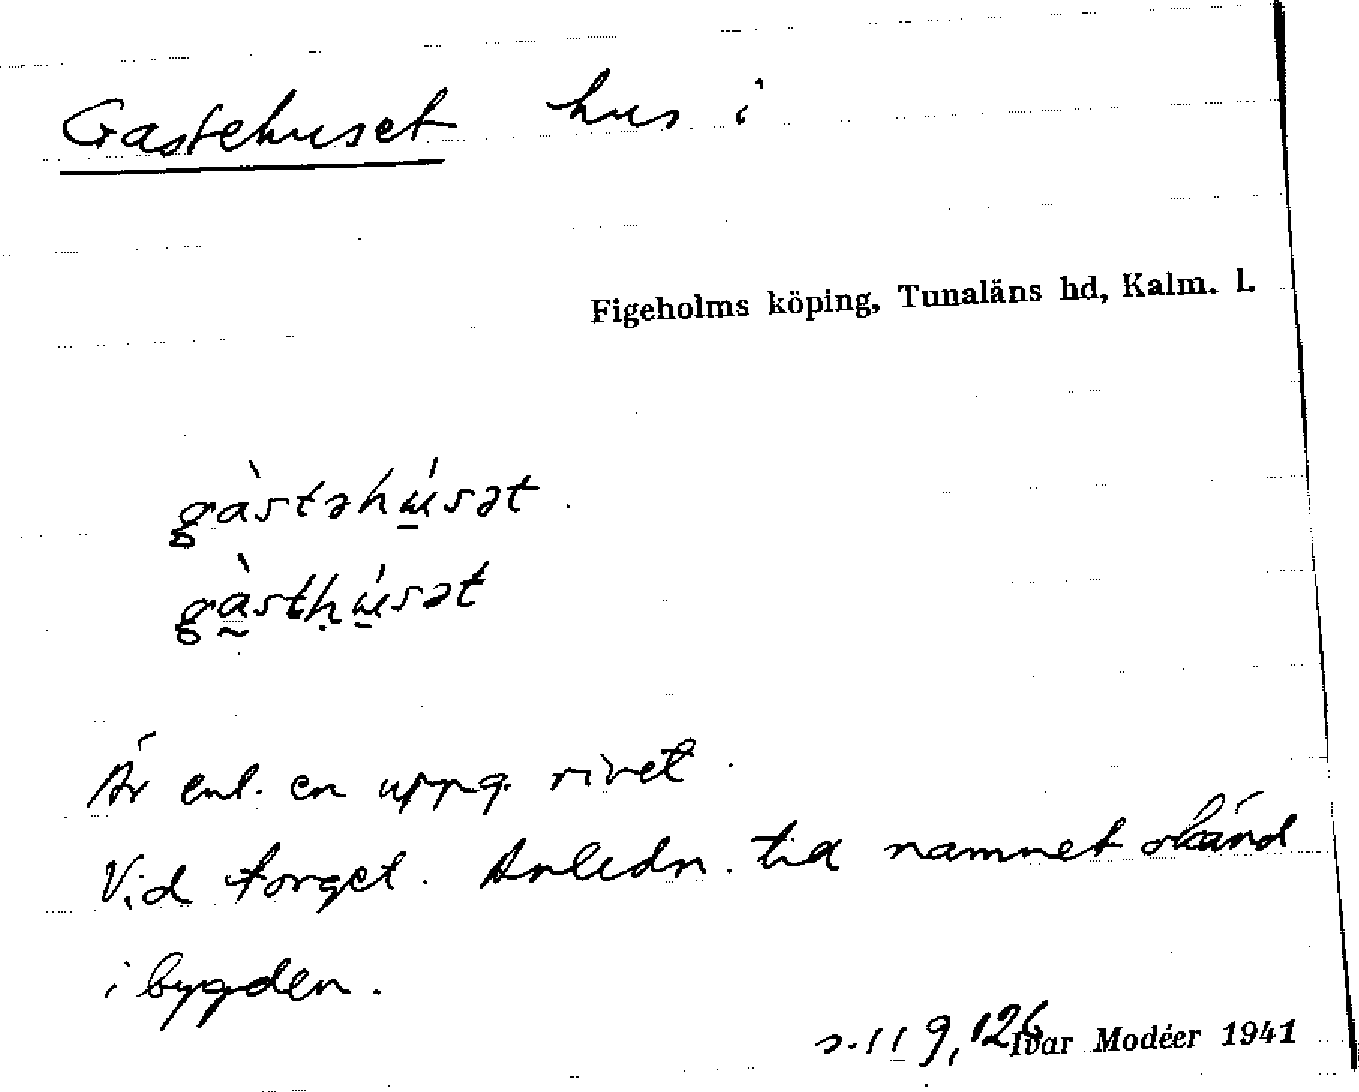 Gastehuset hus i
Figeholms köping, Tunaläns hd, Kalm. l.
gàstəhú̱sət.
gà̰stḥú̱sət
Är enl. en uppg. rivet.
Vid torget. Anledn. till namnet okänd
i bygden.
s. 119, 126 Ivar Modéer 1941